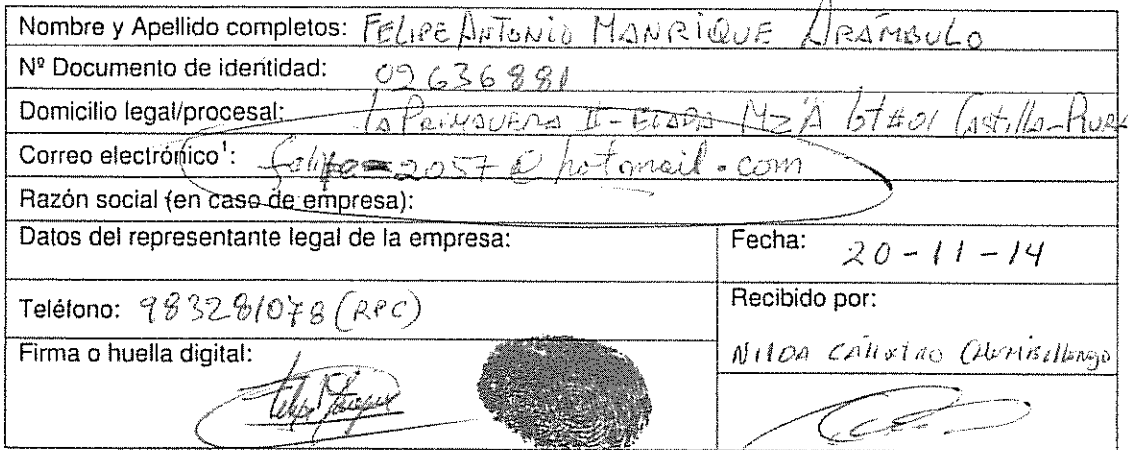 Nombre y Apellido completos: FELIPE ANTONIO MANRIQUE ARÁMBULO
Nº Documento de identidad: 02636881
Domicilio legal/procesal: la PRIMAVERA II-ETAPA MzA lt#01 Castilla-Piura
Correo electrónico¹: felipe-2057@hotmail.com
Razón social (en caso de empresa):
Datos del representante legal de la empresa:
Fecha: 20-11-14
Teléfono: 983281078 (RPC)
Recibido por:
NILDA
Firma o huella digital: